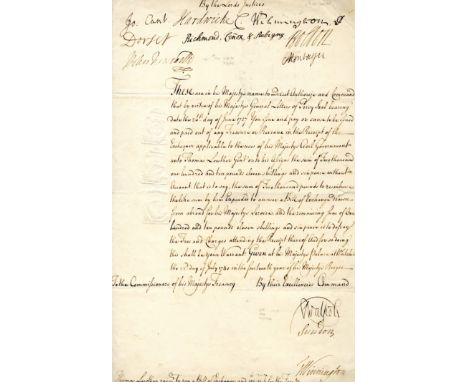 By the Lords Justices
Jo. Cant Hardwicke C Wilmington P
Dorset Richmond, Lenox & Aubigny Bolton
Montagu
These are in his Majestys name to direct Authorise and Command
that by virtue of his Majestys General Letters of Privy Seal bearing
date the day of June 1727 You Issue and pay or cause to be Issued
and paid out of any Treasure or Revenue in the Receipt of the
Exchequer applicable to the uses of his Majestys Civil Government
unto Thomas Lowther Gent or to his Assigns the sum of Two thousand
one hundred and ten pounds eleven shillings and six pence without
Account that is to say the sum of Two thousand pounds to reimburse
the like sum by him Expended to answer a Bill of Exchange drawn
from abroad for his Majestys Service and the remaining sum of One
hundred and ten pounds eleven shillings and six pence to satisfy
the Fees and Charges attending the Receipt thereof And for so doing
this shall be your Warrant Given at his Majestys Palace at Whitehall
the day of July 1740 in the fourteenth year of his Majestys Reign
To the Commissioners of his Majestys Treasury By their Excellencies Command
R Walpole
Sundon
T Winnington